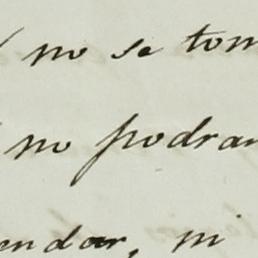 no se tom
no podran
endar, ni